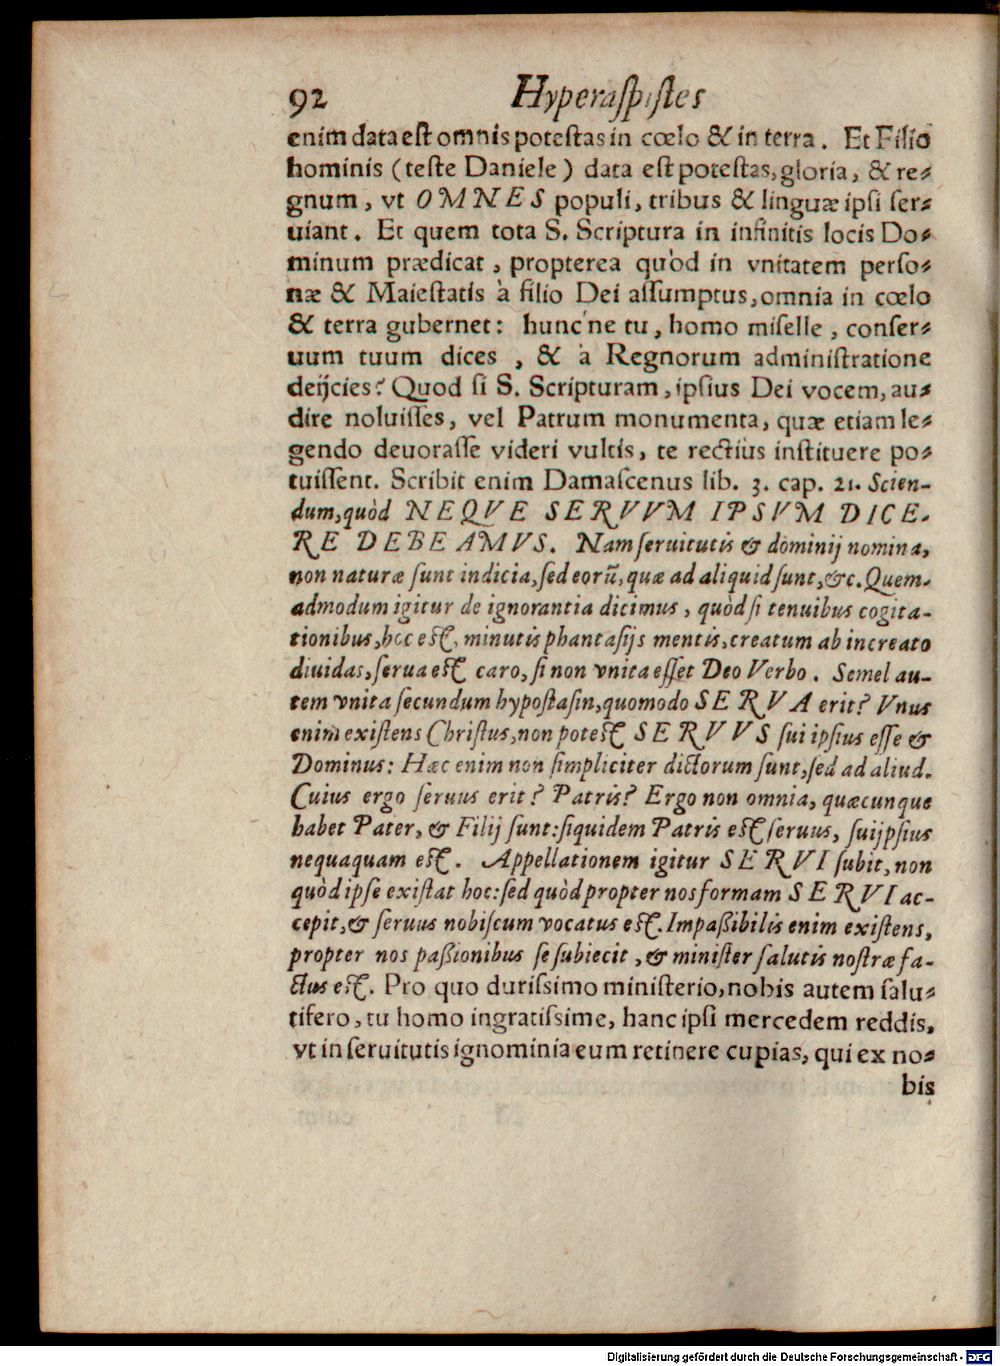 92 Hyperaſpiſtes
enim data eſt omnis poteſtas in cœlo & in terra. Et Filio
hominis (teſte Daniele) data eſt poteſtas, gloria, & re-
gnum, vt OMNES populi, tribus & linguæ ipſi ſer-
uiant. Et quem tota S. Scriptura in infinitis locis Do-
minum prædicat, propterea quòd in vnitatem perſo-
næ & Maieſtatis à filio Dei aſſumptus, omnia in cœlo
& terra gubernet: hunc'ne tu, homo miſelle, conſer-
uum tuum dices, & à Regnorum adminiſtratione
deijcies? Quod ſi S. Scripturam, ipſius Dei vocem, au-
dire noluiſſes, vel Patrum monumenta, quæ etiam le-
gendo deuoraſſe videri vultis, te rectiùs inſtituere po-
tuiſſent. Scribit enim Damaſcenus lib. 3. cap. 21. Scien-
dum, quòd NEQVE SERVVM IPSVM DICE-
RE DEBEAMVS. Nam ſeruitutis & dominij nomina,
non naturæ ſunt indicia, ſed eorũ, quæ ad aliquid ſunt, &c. Quem-
admodum igitur de ignorantia dicimus, quòd ſi tenuibus cogita-
tionibus, hoc eſt, minutis phantaſijs mentis, creatum ab increato
diuidas, ſerua eſt caro, ſi non vnita eſſet Deo Verbo. Semel au-
tem vnita ſecundum hypoſtaſin, quomodo SERVA erit? Vnus
enim exiſtens Chriſtus, non poteſt SERVVS ſui ipſius eſſe &
Dominus: Hæc enim non ſimpliciter dictorum ſunt, ſed ad aliud.
Cuius ergo ſeruus erit? Patris? Ergo non omnia, quæcunque
habet Pater, & Filij ſunt: ſiquidem Patris eſt ſeruus, ſuijpſius
nequaquam eſt. Appellationem igitur SERVI ſubit, non
quòd ipſe exiſtat hoc: ſed quòd propter nos formam SERVI ac-
cepit, & ſeruus nobiſcum vocatus eſt. Impaßibilis enim exiſtens,
propter nos paßionibus ſe ſubiecit, & miniſter ſalutis noſtræ fa-
ctus eſt. Pro quo duriſsimo miniſterio, nobis autem ſalu-
tifero, tu homo ingratiſsime, hanc ipſi mercedem reddis,
vt in ſeruitutis ignominia eum retinere cupias, qui ex no-
bis
Digitalisierung gefördert durch die Deutsche Forschungsgemeinschaft - DFG